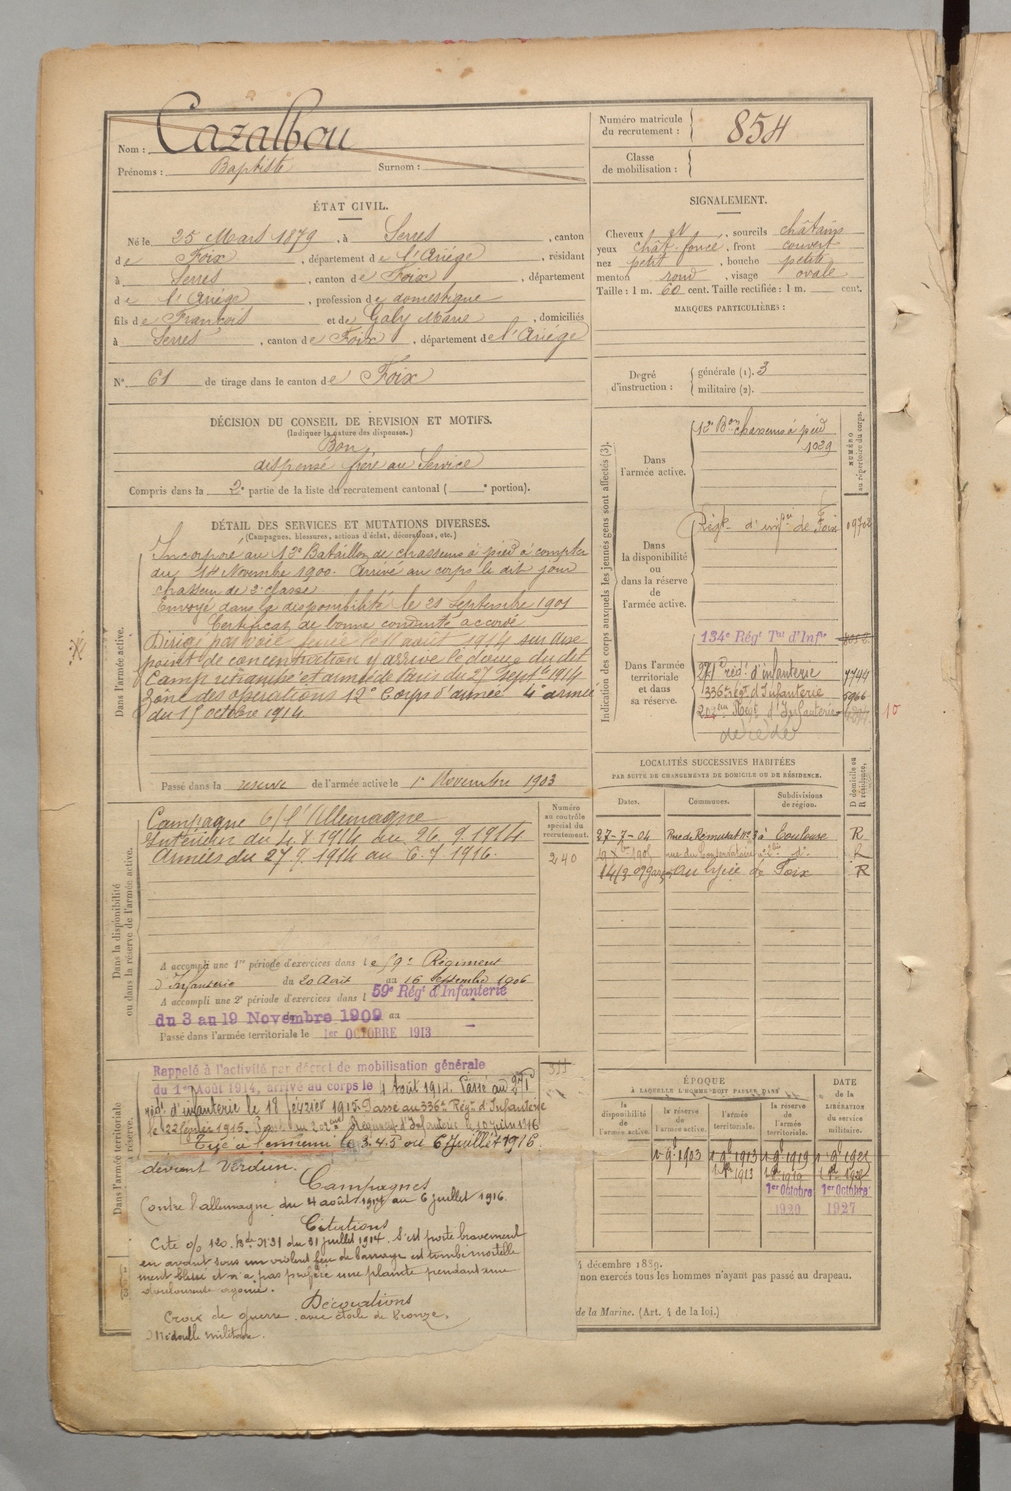 Nom : Cazalbou
Prénoms : Baptiste Surnom :
Numéro matricule du recrutement : 854
Classe de mobilisation :
ÉTAT CIVIL.
Né le 25 Mars 1879, à Serres, canton
de Foix, département de l'Ariége, résidant
à Serres, canton de Foix, département
de l'Ariége, profession de domestique
fils de François et de Galy Marie, domiciliés
à Serres, canton de Foix, département de l'Ariége
N° 61 de tirage dans le canton de Foix
SIGNALEMENT.
Cheveux et, sourcils châtains
yeux chât. foncé, front couvert
nez petit, bouche petite
menton rond, visage ovale
Taille : 1 m. 60 cent. Taille rectifiée : 1 m. cent.
MARQUES PARTICULIÈRES :
Degré d'instruction : générale (1). 3
militaire (2).
DÉCISION DU CONSEIL DE REVISION ET MOTIFS.
(Indiquer la nature des dispenses.)
Bon
dispensé frère au Service
Compris dans la 2e partie de la liste du recrutement cantonal ( e portion).
DÉTAIL DES SERVICES ET MUTATIONS DIVERSES.
(Campagnes, blessures, actions d'éclat, décorations, etc.)
Dans l'armée active.
Incorporé au 12e Bataillon de chasseurs à pied à compter
du 14 Novembre 1900. Arrivé au corps le dit jour
chasseur de 2e classe
Envoyé dans la disponibilité le 21 Septembre 1901
Certificat de bonne conduite accordé
Dirigé par voie ferrée le 11 août 1914 sur une
point de concentration y arrive le douze du dit
Camp retranché et armée de Paris du 27 Septbre 1914
Zône des opérations 12e Corps d'armée 4e armée
du 15 octobre 1914
Passé dans la reserve de l'armée active le 1er Novembre 1903
Indication des corps auxquels les jeunes gens sont affectés (3).
NUMÉRO au répertoire du corps.
Dans l'armée active.
12e Bon chasseurs à pied
1029
Dans la disponibilité ou dans la réserve de l'armée active.
Régt d'infie de Foix
Dans l'armée territoriale et dans sa réserve.
134e Régt Tal d'Infie
271e rég. d'infanterie 7744
336e rég. d'Infanterie 5966
202eme Regt d'Infanterie
décédé
10
LOCALITÉS SUCCESSIVES HABITÉES
PAR SUITE DE CHANGEMENTS DE DOMICILE OU DE RÉSIDENCE.
D domicile ou R résidence.
Dates. Communes. Subdivisions de région.
27-7-04 Rue de Remusat N° 7 à Toulouse R
rue du Conservatoire R
au lycée de Foix R
Dans la disponibilité ou dans la réserve de l'armée active.
Numéro au contrôle spécial du recrutement.
240
Campagne c/ l'Allemagne
Intérieur du 4.8.1914 au 26.9.1914
Armées du 27.9.1914 au 6.7.1916.
A accompli une 1re période d'exercices dans le 59e Régiment
d'Infanterie du 20 Août au 16 Septembre 1906
A accompli une 2e période d'exercices dans l 59e Régt d'Infanterie
du 3 au 19 Novembre 1909 au
Passé dans l'armée territoriale le 1er OCTOBRE 1913
Dans l'armée territoriale
réserve.
Rappelé à l'activité par décret de mobilisation générale
du 1er Août 1914, arrivé au corps le 4 Août 1914. Passé au 271e
régt d'infanterie le 18 février 1915. Passé au 336e Régt d'Infanterie
le 22 février 1915. Passé au 202eme Régiment d'Infanterie le 10 juin 1916
Tué à l'ennemi le 3.4.5 ou 6 Juillet 1916.
devant Verdun.
Campagnes
Contre l'allemagne du 4 août 1914 au 6 juillet 1916.
Citations
Cité o/ 120. Bde N° 31 du 31 juillet 1914. S'est porté bravement
en avant sous un violent feu de barrage est tombé mortelle
ment blessé et n'a pas proféré une plainte pendant une
douloureuse agonie.
Décorations
Croix de guerre avec étoile de bronze.
Médaille militaire.
ÉPOQUE
À LAQUELLE L'HOMME DOIT PASSER DANS
DATE de la LIBÉRATION du service militaire.
la disponibilité de l'armée active.
la réserve de l'armée active.
l'armée territoriale.
la réserve de l'armée territoriale.
1er 9bre 1903 1er 9bre 1913 1er 9bre 1919 1er 9bre 1921
1er Octobre 1920
1er Octobre 1927
4 décembre 1889.
non exercés tous les hommes n'ayant pas passé au drapeau.
de la Marine. (Art. 4 de la loi.)